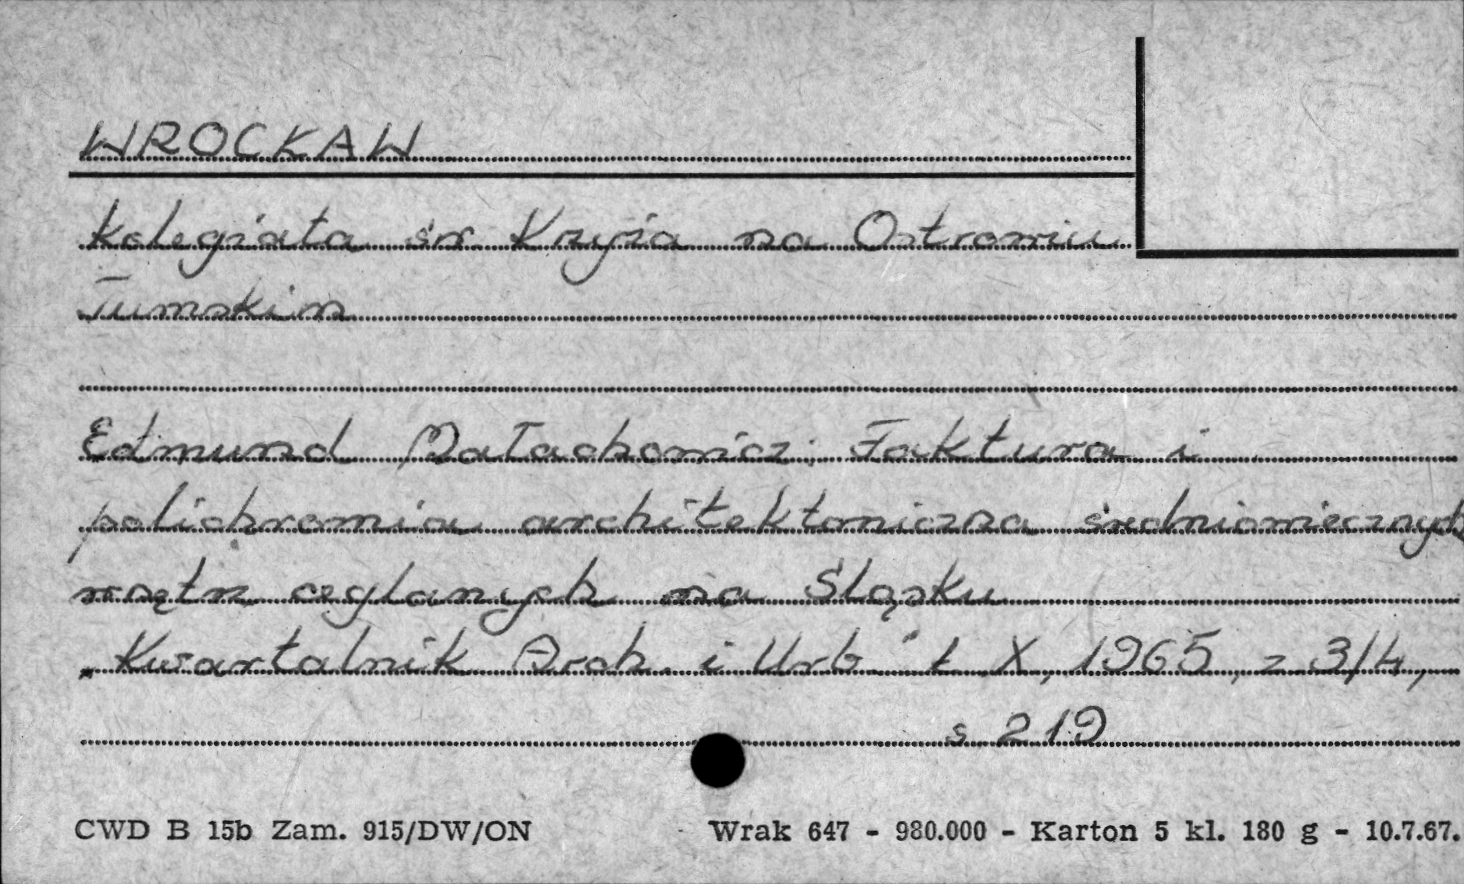 WROCŁAW
Kolegiata św Krzyża na Ostrowiu
Tumskim
Edmund Małachowicz: Faktura i
polichromia architektoniczna średniowiecznych
wnętrz ceglanych na Śląsku
„Kwartalnik Arch. i Urb." t X, 1965, z 3/4,
s 219
CWD B 15b Zam. 915/DW/ON Wrak 647 - 980.000 - Karton 5 kl. 180 g - 10.7.67.